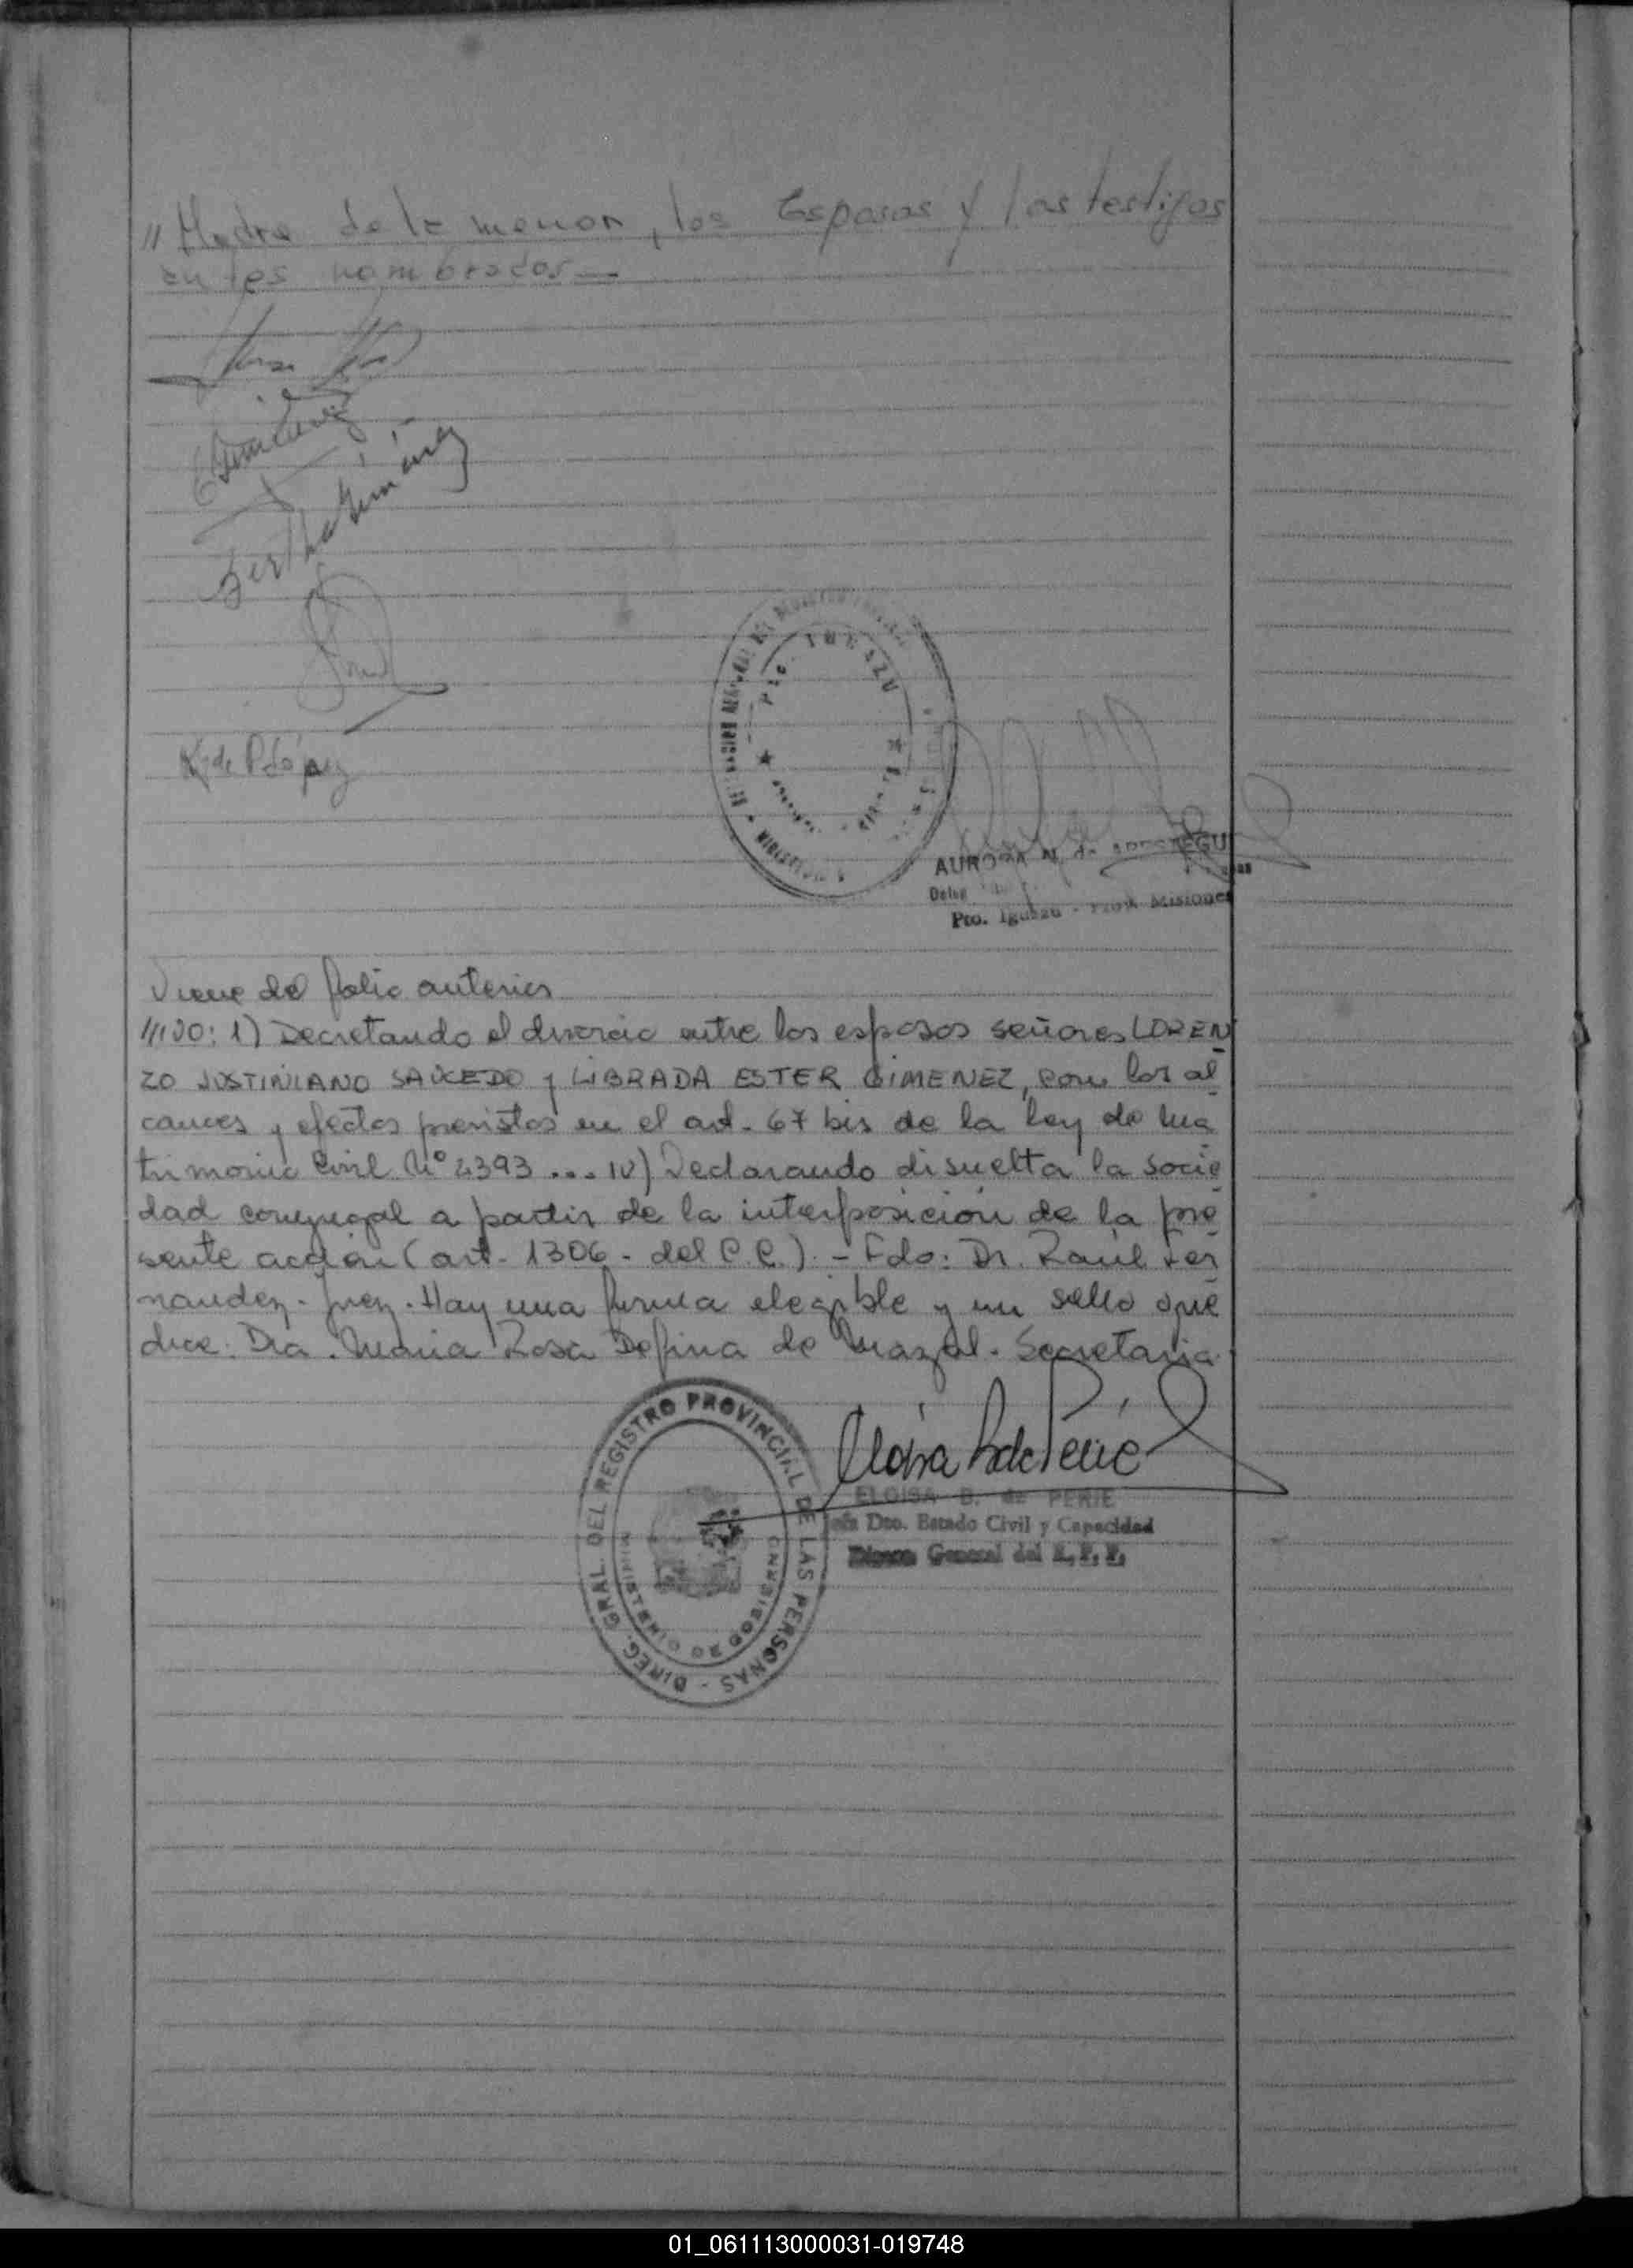 // Madre de la menor, los Esposos y los testigos
antes nombrados —
Bertha Gimenez
K. de P. López
PTO. IGUAZU
AURORA N. de
Pto. Iguazú - Misiones
Viene del folio anterior
////DO: 1) Decretando el divorcio entre los esposos señores LOREN
ZO JUSTINIANO SAUCEDO y LIBRADA ESTER GIMENEZ, con los al
cances y efectos previstos en el art. 67 bis de la ley de ma
trimonio Civil Nº 2393 ... IV) Declarando disuelta la socie
dad conyugal a partir de la interposición de la pre
sente acción (art. 1306 - del C.C.). - Fdo: Dr. Raúl Fer
nandez - Juez. Hay una firma elegible y un sello que
dice: Dra. Maria Rosa Defina de Marzal. Secretaria.
DIREC. GRAL. DEL REGISTRO PROVINCIAL DE LAS PERSONAS
MINISTERIO DE GOBIERNO
ELOISA B. de PERIE
Jefa Dto. Estado Civil y Capacidad
General del R. P. P.
01_061113000031-019748